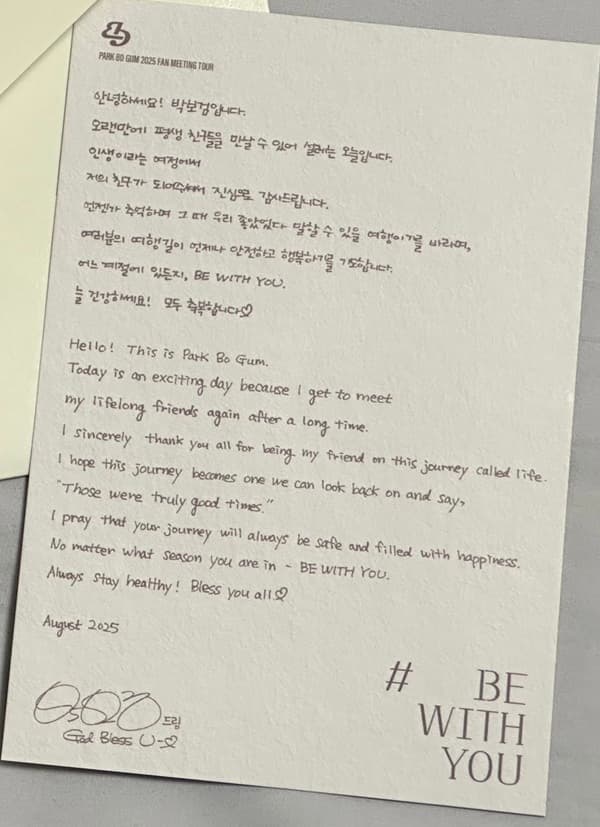 PARK BO GUM 2025 FAN MEETING TOUR
안녕하세요! 박보검입니다.
오랜만에 평생 친구들을 만날 수 있어 설레는 오늘입니다.
인생이라는 여정에서
저의 친구가 되어주셔서 진심으로 감사드립니다.
언젠가 추억하며 그 때 우리 좋았었다 말할 수 있을 여행이기를 바라며,
여러분의 여행길이 언제나 안전하고 행복하기를 기도합니다.
어느 계절에 있든지, BE WITH YOU.
늘 건강하세요! 모두 축복합니다♡
Hello! This is Park Bo Gum.
Today is an exciting day because I get to meet
my lifelong friends again after a long time.
I sincerely thank you all for being my friend on this journey called life.
I hope this journey becomes one we can look back on and say,
"Those were truly good times."
I pray that your journey will always be safe and filled with happiness.
No matter what season you are in - BE WITH YOU.
Always stay healthy! Bless you all♡
August 2025
드림
God Bless U-♡
# BE
WITH
YOU